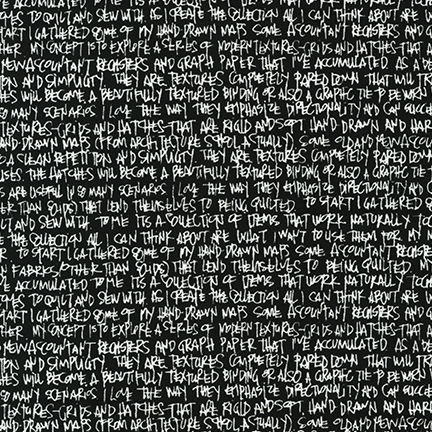 ACCUMULATED TO ME ITS A COLLECTION OF ITEMS THAT WORK NATURALLY
TO QUILT AND SEW WITH AS I CREATE THE COLLECTION ALL I CAN THINK ABOUT ARE
START I GATHERED SOME OF MY HAND DRAWN MAPS SOME ACCOUNTANT REGISTERS AND
MY CONCEPT IS TO EXPLORE A SERIES OF MODERN TEXTURES-GRIDS AND HATCHES THAT
ACCOUNTANT REGISTERS AND GRAPH PAPER THAT I'VE ACCUMULATED AS A
AND SIMPLICITY THEY ARE TEXTURES COMPLETELY PARED DOWN THAT WILL
WILL BECOME A BEAUTIFULLY TEXTURED BINDING OR ALSO A GRAPHIC TIE
SO MANY SCENARIOS I LOVE THE WAY THEY EMPHASIZE DIRECTIONALITY AND CAN
TEXTURES-GRIDS AND HATCHES-THAT ARE RIGID AND SOFT, HAND DRAWN AND
HAND DRAWN MAPS (FROM ARCHITECTURE SCHOOL ACTUALLY) SOME OLD AND NEW
A CLEAN REPETITION AND SIMPLICITY. THEY ARE TEXTURES COMPLETELY PARED DOWN
THE HATCHES WILL BECOME A BEAUTIFULLY TEXTURED BINDING OR ALSO A GRAPHIC
ARE USEFUL IN SO MANY SCENARIOS I LOVE THE WAY THEY EMPHASIZE DIRECTIONALITY AND
THAN SOLIDS) THAT LEND THEMSELVES TO BEING QUILTED TO START I GATHERED
AND SEW WITH. TO ME ITS A COLLECTION OF ITEMS THAT WORK NATURALLY
THE COLLECTION ALL I CAN THINK ABOUT ARE WHAT I WANT TO USE THEM FOR MY
TO START I GATHERED SOME OF MY HAND DRAWN MAPS SOME ACCOUNTANT
FABRICS (OTHER THAN SOLIDS) THAT LEND THEMSELVES TO BEING QUILTED
ACCUMULATED TO ME ITS A COLLECTION OF ITEMS THAT WORK NATURALLY
TO QUILT AND SEW WITH AS I CREATE THE COLLECTION ALL I CAN THINK ABOUT ARE
START I GATHERED SOME OF MY HAND DRAWN MAPS SOME ACCOUNTANT REGISTERS AND
MY CONCEPT IS TO EXPLORE A SERIES OF MODERN TEXTURES-GRIDS AND HATCHES THAT
ACCOUNTANT REGISTERS AND GRAPH PAPER THAT I'VE ACCUMULATED AS A
AND SIMPLICITY THEY ARE TEXTURES COMPLETELY PARED DOWN THAT WILL
WILL BECOME A BEAUTIFULLY TEXTURED BINDING OR ALSO A GRAPHIC TIE
SO MANY SCENARIOS I LOVE THE WAY THEY EMPHASIZE DIRECTIONALITY AND CAN
TEXTURES-GRIDS AND HATCHES-THAT ARE RIGID AND SOFT, HAND DRAWN AND
HAND DRAWN MAPS (FROM ARCHITECTURE SCHOOL ACTUALLY) SOME OLD AND NEW